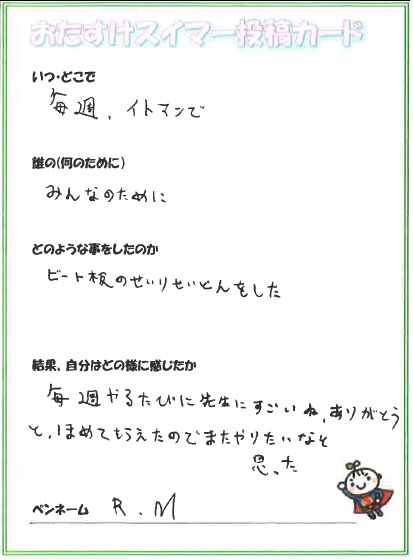 おたすけスイマー投稿カード
いつ・どこで
毎週、イトマンで
誰の(何のために)
みんなのために
どのような事をしたのか
ビート板のせいりせいとんをした
結果、自分はどの様に感じたか
毎週やるたびに先生にすごいね、ありがとう
と、ほめてもらえたのでまたやりたいなと
思った
ペンネーム R.M